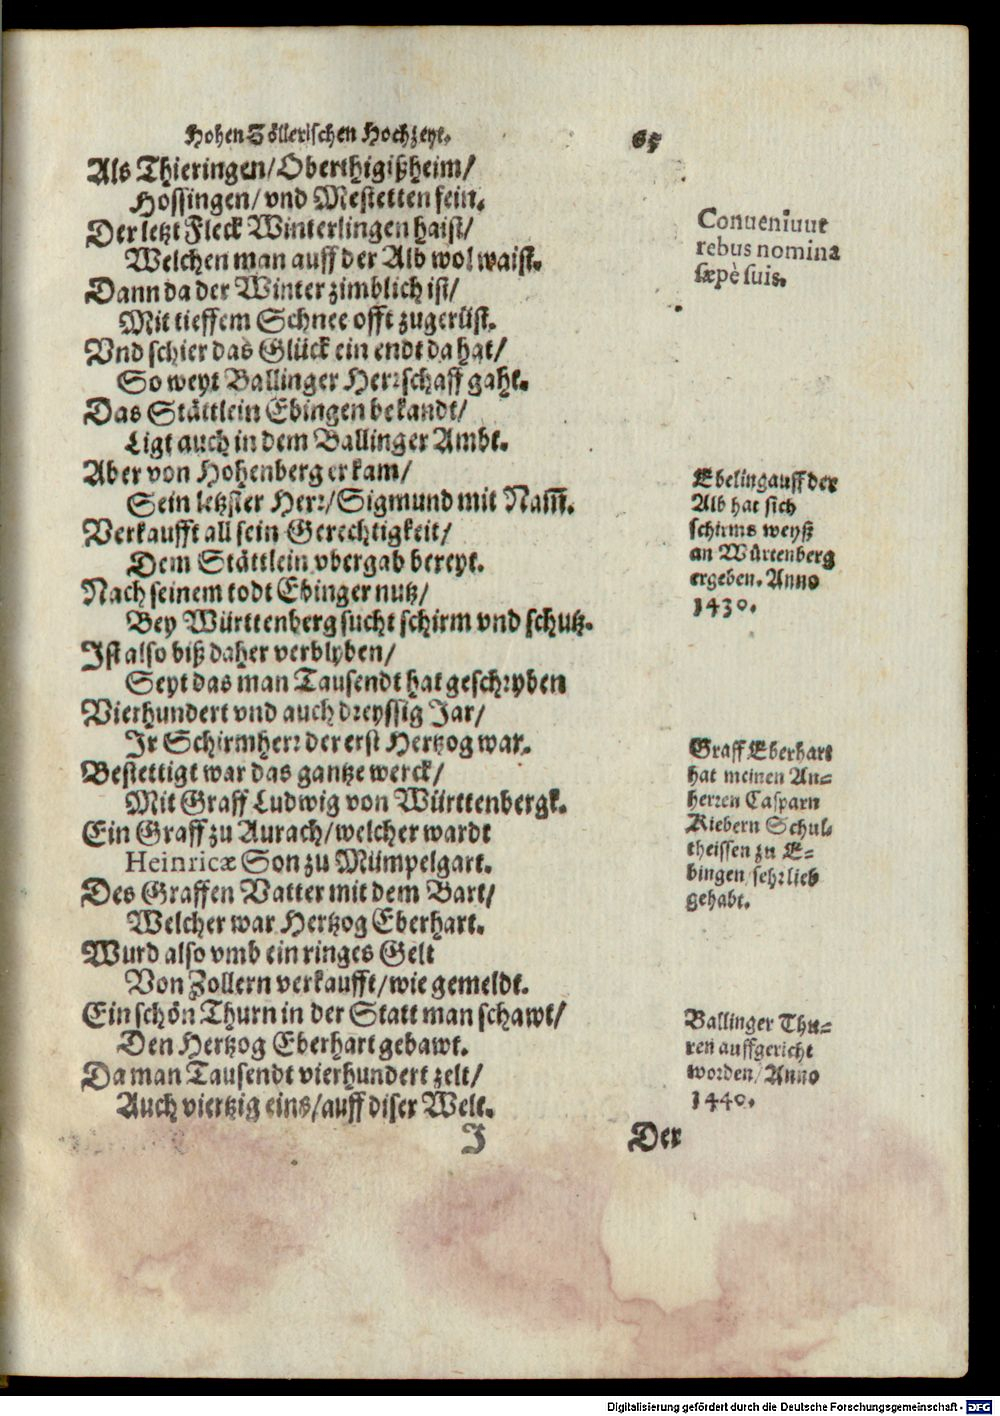 Hohen Zöllerischen Hochzeyt. 65
Als Thieringen/Oberthigißheim/
Hossingen/vnd Mestetten fein.
Der letzt Fleck Winterlingen haist/
Welchen man auff der Alb wol waist.
Dann da der Winter zimblich ist/
Mit tieffem Schnee offt zugerüst.
Vnd schier das Glück ein endt da hat/
So weyt Ballinger Herrschaff gaht.
Das Stättlein Ebingen bekandt/
Ligt auch in dem Ballinger Ambt.
Aber von Hohenberg er kam/
Sein letzster Herr/Sigmund mit Nam̃.
Verkaufft all sein Gerechtigkeit/
Dem Stättlein vbergab bereyt.
Nach seinem todt Ebinger nutz/
Bey Württenberg sucht schirm vnd schutz.
Ist also biß daher verblyben/
Seyt das man Tausendt hat geschryben
Vierhundert vnd auch dreyssig Jar/
Ir Schirmherr der erst Hertzog war.
Bestettigt war das gantze werck/
Mit Graff Ludwig von Württenbergk.
Ein Graff zu Aurach/welcher wardt
Heinricæ Son zu Mümpelgart.
Des Graffen Vatter mit dem Bart/
Welcher war Hertzog Eberhart.
Wurd also vmb ein ringes Gelt
Von Zollern verkaufft/wie gemeldt.
Ein schön Thurn in der Statt man schawt/
Den Hertzog Eberhart gebawt.
Da man Tausendt vierhundert zelt/
Auch viertzig eins/auff diser Welt.
J Der
Conueniūut
rebus nomina
sæpè suis.
Ebelingauff der
Alb hat sich
schirms weyß
an Würtenberg
ergeben. Anno
1430.
Graff Eberhart
hat meinen An-
herren Casparn
Riebern Schul-
theissen zu E-
bingen/sehr lieb
gehabt.
Ballinger Thu-
ren auffgericht
worden/Anno
1440.
Digitalisierung gefördert durch die Deutsche Forschungsgemeinschaft - DFG